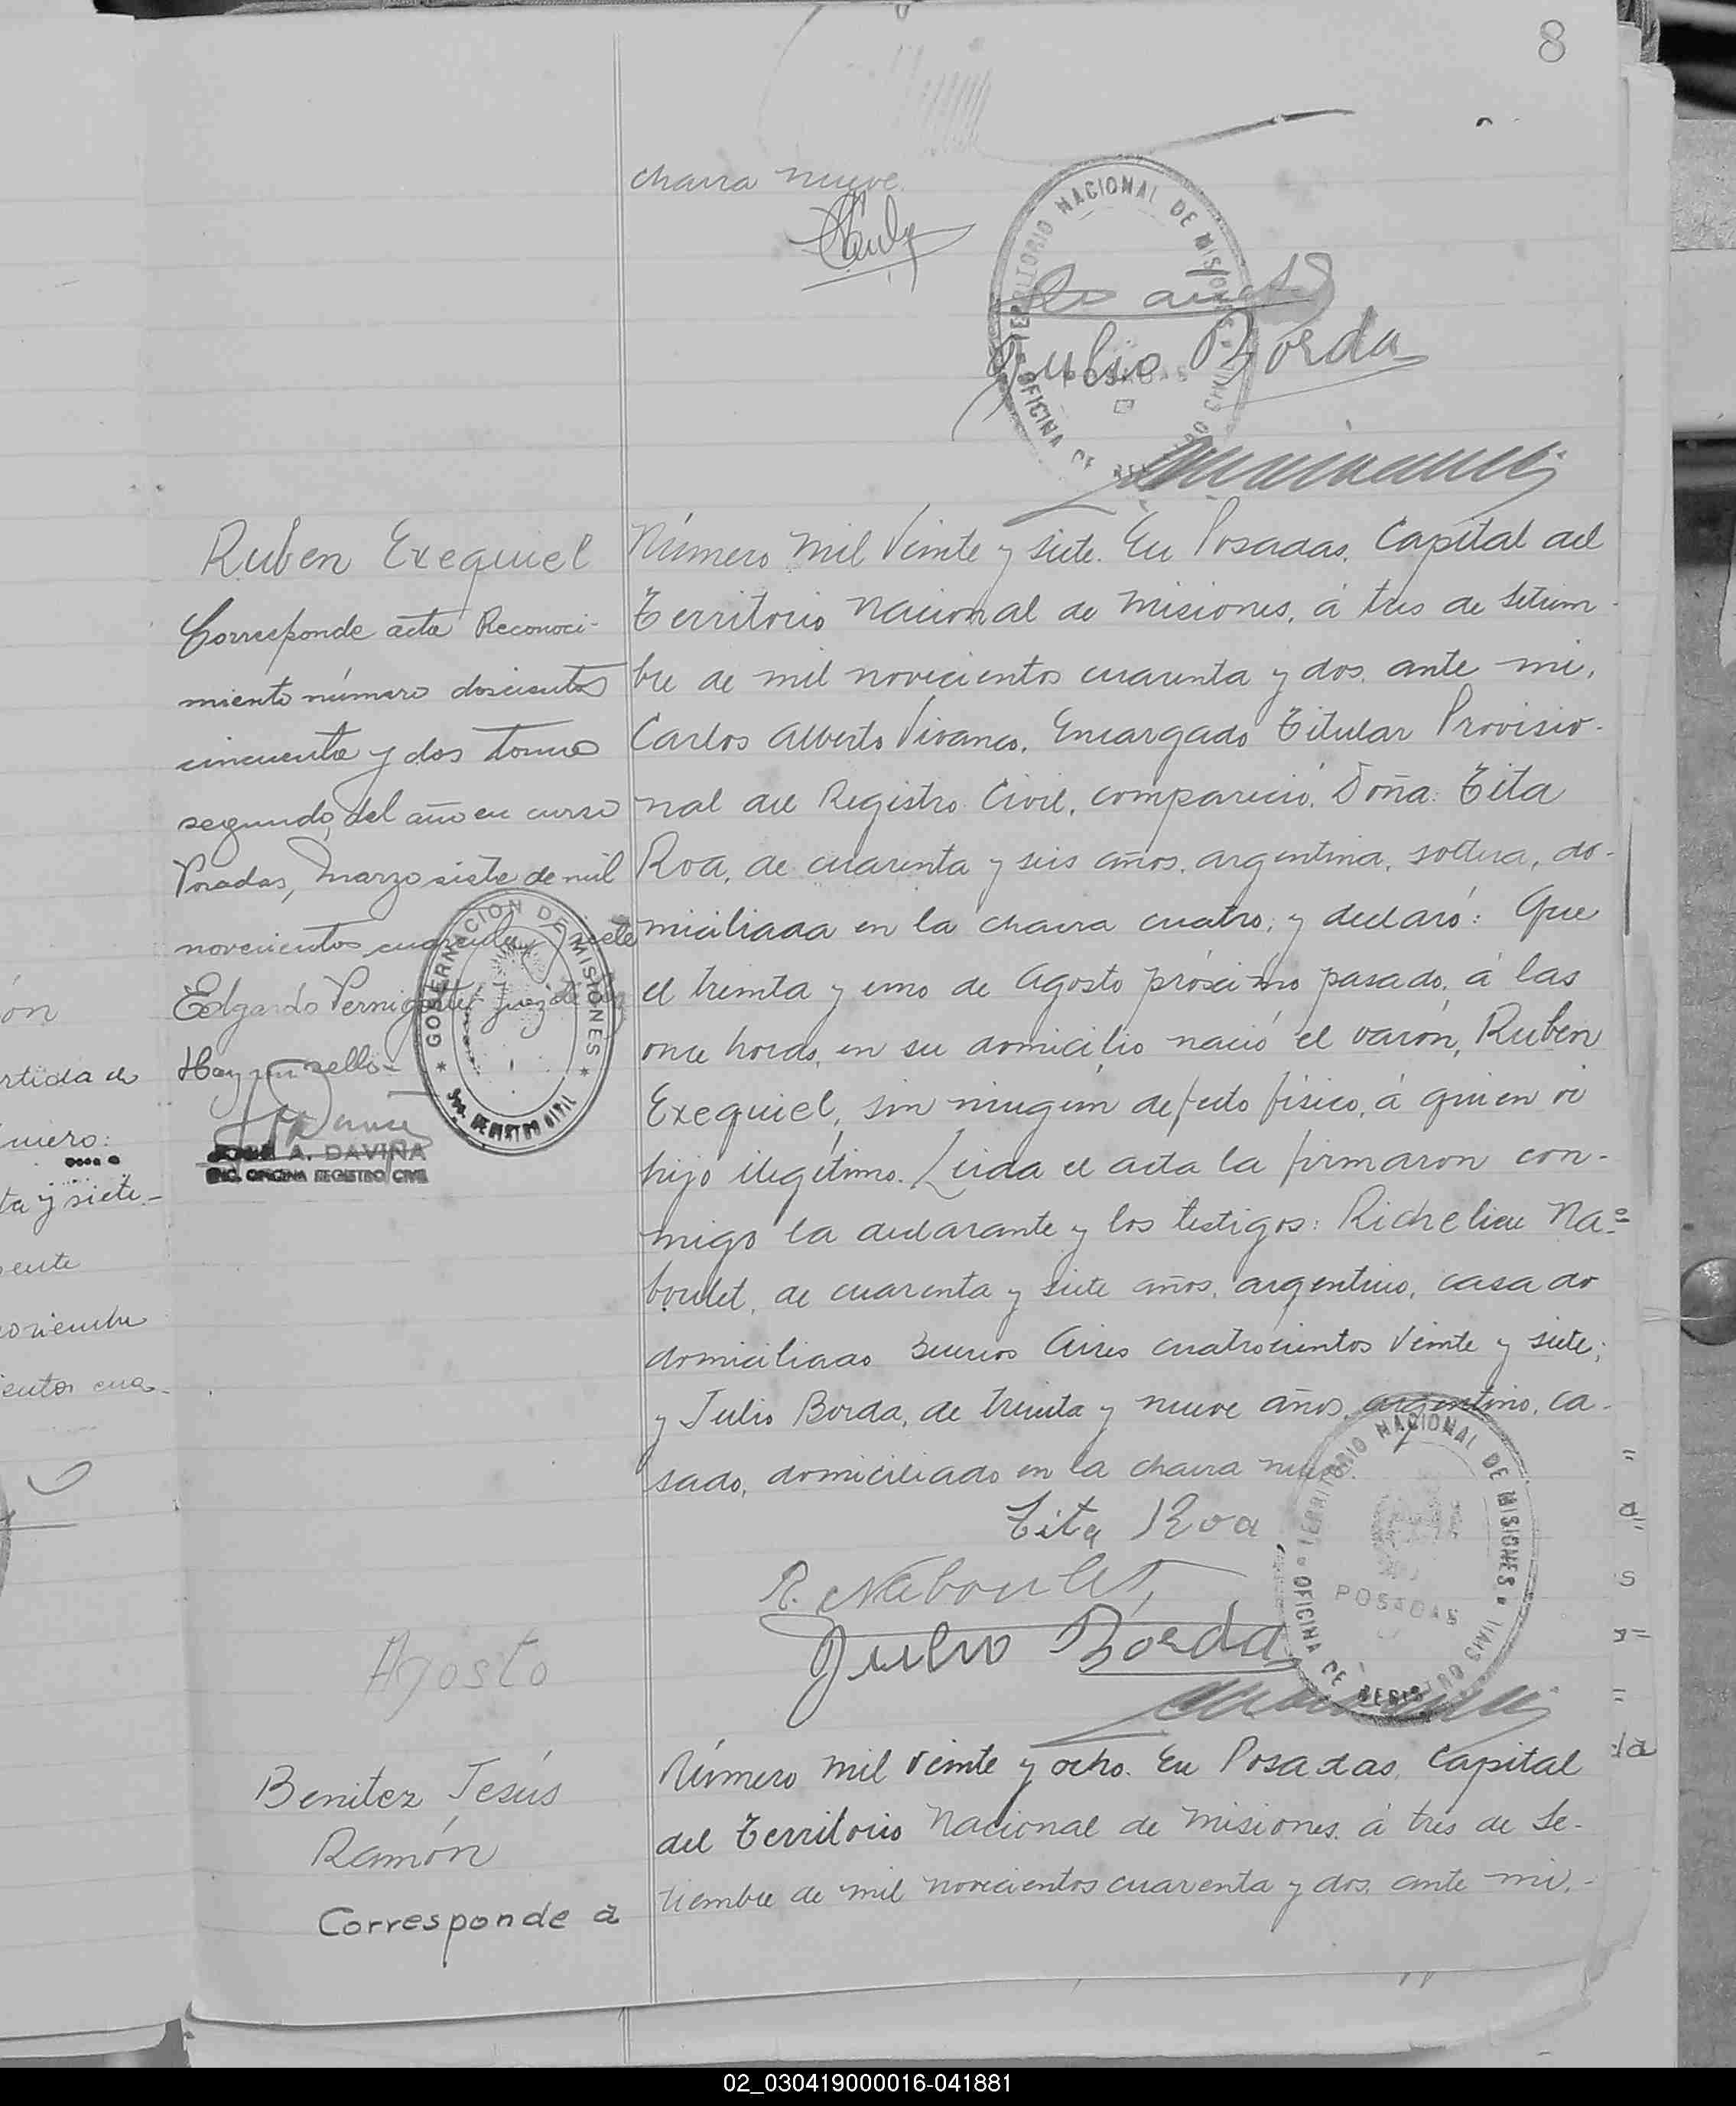 8
chacra nueve.
Julio Borda
TERRITORIO NACIONAL DE MISIONES
OFICINA DE REGISTRO CIVIL
POSADAS
Ruben Exequiel
Corresponde acta Reconoci-
miento número doscientos
cincuenta y dos tomo
segundo, del año en curso
Posadas, Marzo siete de mil
novecientos cuarenta y siete
Edgardo
Hay un sello-
GOBERNACION DE MISIONES
REGISTRO CIVIL
JOSE A. DAVIÑA
ENC. OFICINA REGISTRO CIVIL
Número mil Veinte y siete. En Posadas, Capital del
Territorio Nacional de Misiones, á tres de Setiem-
bre de mil novecientos cuarenta y dos, ante mi,
Carlos Alberto Vivanco, Encargado Titular Provisio-
nal del Registro Civil, compareció, Doña: Tita
Roa, de cuarenta y seis años, argentina, soltera, do-
miciliada en la chacra cuatro, y declaró: Que
el treinta y uno de Agosto próximo pasado, á las
once horas, en su domicilio nació el varón, Ruben
Exequiel, sin ningún defecto físico, á quien vi
hijo ilegítimo. Leida el acta la firmaron con-
migo la declarante y los testigos: Richelieu Na=
boulet, de cuarenta y siete años, argentino, casado
domiciliado Buenos Aires cuatrocientos Veinte y siete;
y Julio Borda, de treinta y nueve años, argentino, ca-
sado, domiciliado en la chacra nueve.
Tita Roa
R. Naboulet
Julio Borda
TERRITORIO NACIONAL DE MISIONES
OFICINA DE REGISTRO CIVIL
POSADAS
Agosto
Benitez Jesús
Ramón
Corresponde a
Número mil Veinte y ocho. En Posadas, Capital
del Territorio Nacional de Misiones, á tres de Se-
tiembre de mil novecientos cuarenta y dos, ante mi,-
ón
rtida de
úmero:
ta y siete.-
ente
oviembre
ientos cua-
02_030419000016-041881